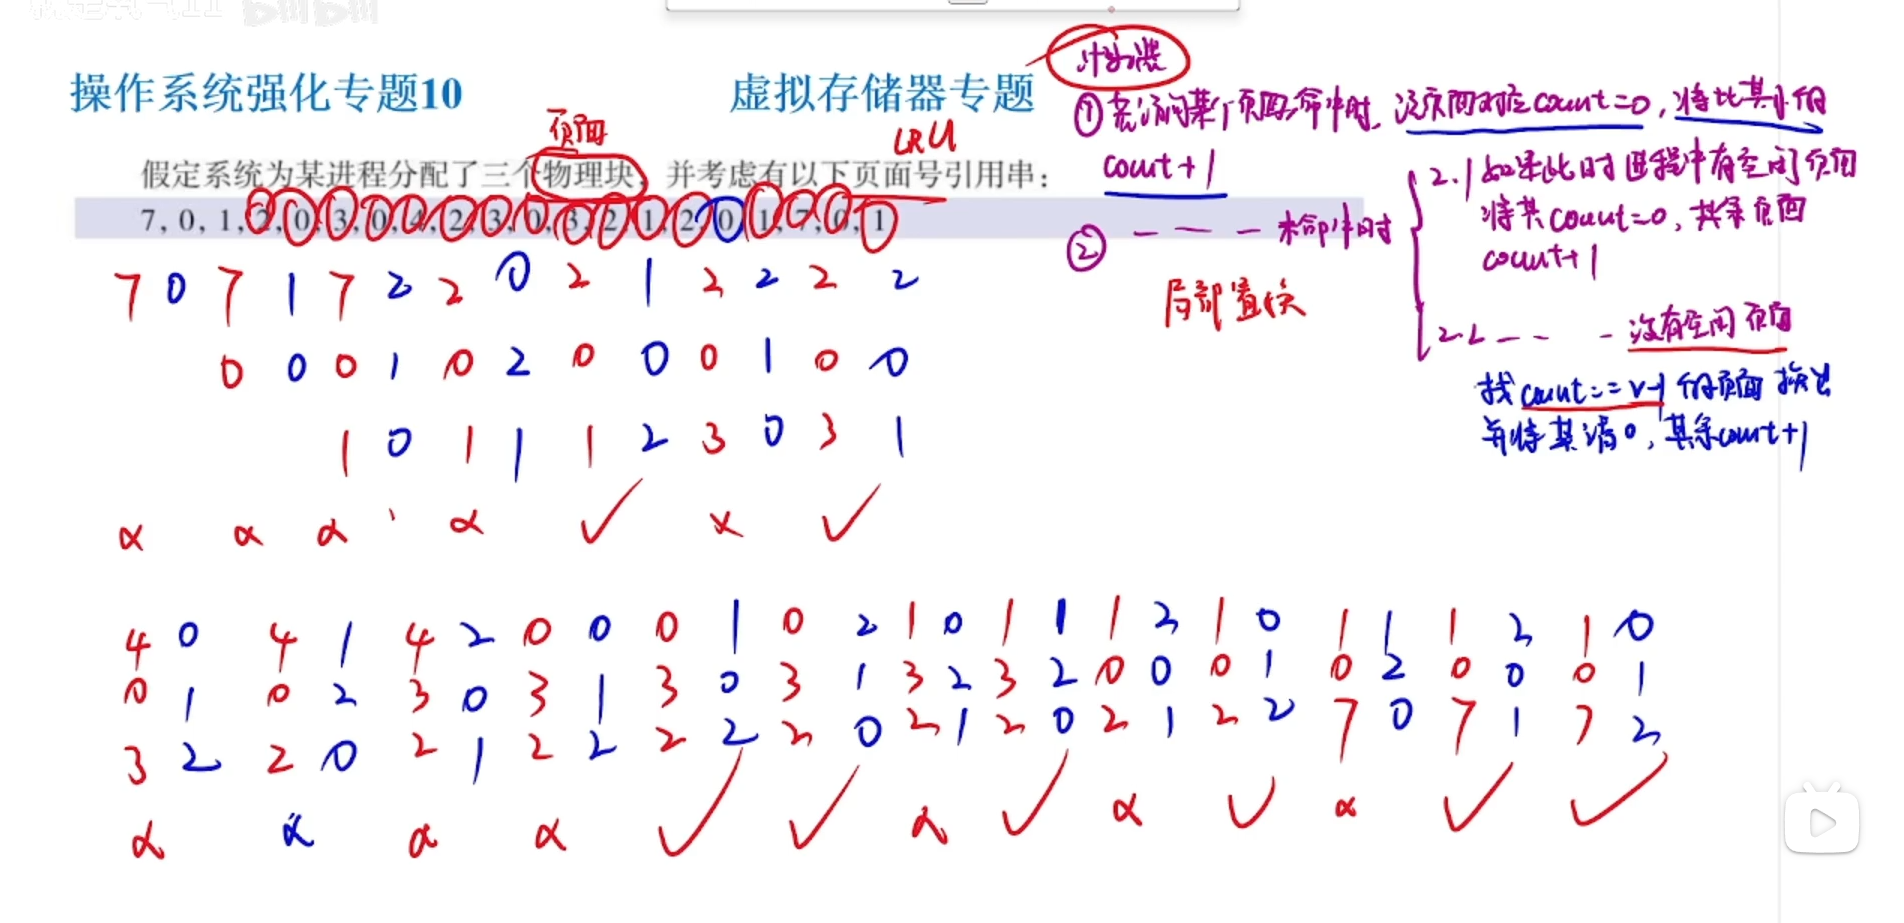 操作系统强化专题10 虚拟存储器专题
计数器
页面
LRU
假定系统为某进程分配了三个物理块，并考虑有以下页面号引用串：
7, 0, 1, 2, 0, 3, 0, 4, 2, 3, 0, 3, 2, 1, 2, 0, 1, 7, 0, 1
① 当访问某个页面命中时，该页面对应count=0，将比其小的
count+1
② — — — 未命中时
2.1 如果此时进程中有空闲页面
将其count=0，其余页面
count+1
局部置换
2.2 — - - 没有空闲页面
找count==v-1的页面换出
并将其清0，其余count+1
7 0 7 1 7 2 2 0 2 1 2 2 2 2
0 0 0 1 0 2 0 0 0 1 0 0
1 0 1 1 1 2 3 0 3 1
× × × × ✓ × ✓
4 0 4 1 4 2 0 0 0 1 0 2 1 0 1 1 1 2 1 0 1 1 1 2 1 0
0 1 0 2 3 0 3 1 3 0 3 1 3 2 3 2 0 0 0 1 0 2 0 0 0 1
3 2 2 0 2 1 2 2 2 2 2 0 2 1 2 0 2 1 2 2 7 0 7 1 7 2
× × × × ✓ ✓ × ✓ × ✓ × ✓ ✓